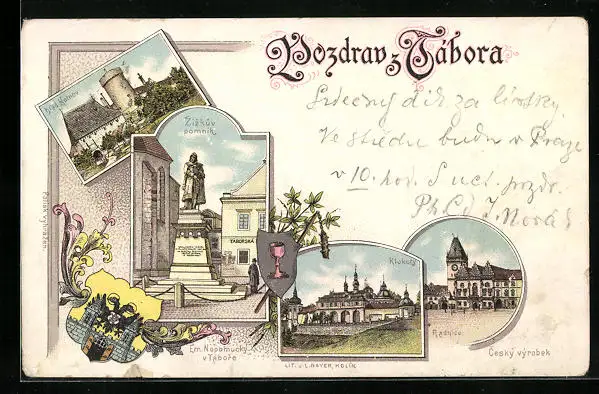 Pozdrav z Tábora
Srdečný dík za
Ve středu budu v Praze
v 10. hod. S uct. pozdr.
Ph. C. J. Novák
Hrad Kotnov
Žižkův
pomník.
TÁBORSKÁ
Klokoty
Radnice
Em. Nepomucký
v Táboře
Český výrobek
LIT. J. L. BAYER, KOLÍN.